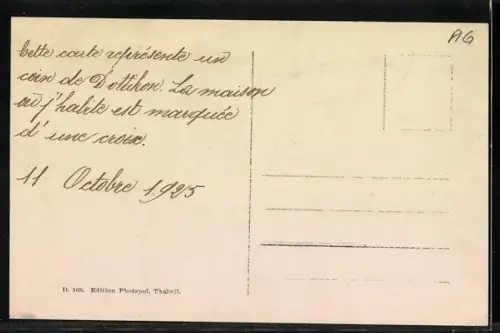 AG
Cette carte représente un
coin de Dottikon. La maison
où j'habite est marquée
d'une croix.
11 Octobre 1925
D. 168. Edition Photopol, Thalwil.